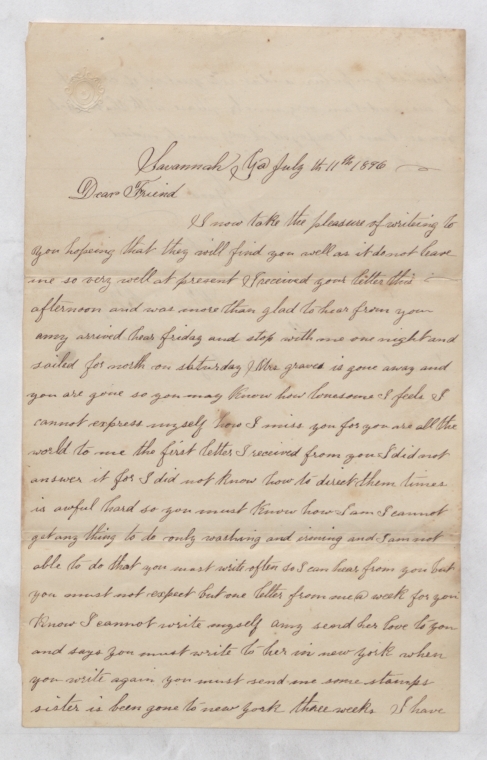 Savannah, Ga July th 11th 1896
Dear Friend
I now take the pleasure of writing to
you hoping that they will find you well as it do not leave
me so very well at present I received your letter this
afternoon and was more than glad to hear from you
amy arrived hear friday and stop with me one night and
sailed for north on saturday Mrs graves is gone away and
you are gone so you may know how lonesome I feels I
cannot express myself how I miss you for you are all the
world to me the first letter I received from you I did not
answer it for I did not know how to direct them times
is awful hard so you must know how I am I cannot
get any thing to do only washing and irining and I am not
able to do that you must write often so I can hear from you but
you must not expect but one letter from me a week for you
know I cannot write myself amy send her love to you
and says you must write to her in new york when
you write again you must send me some stamps
sister is been gone to new york three weeks I have